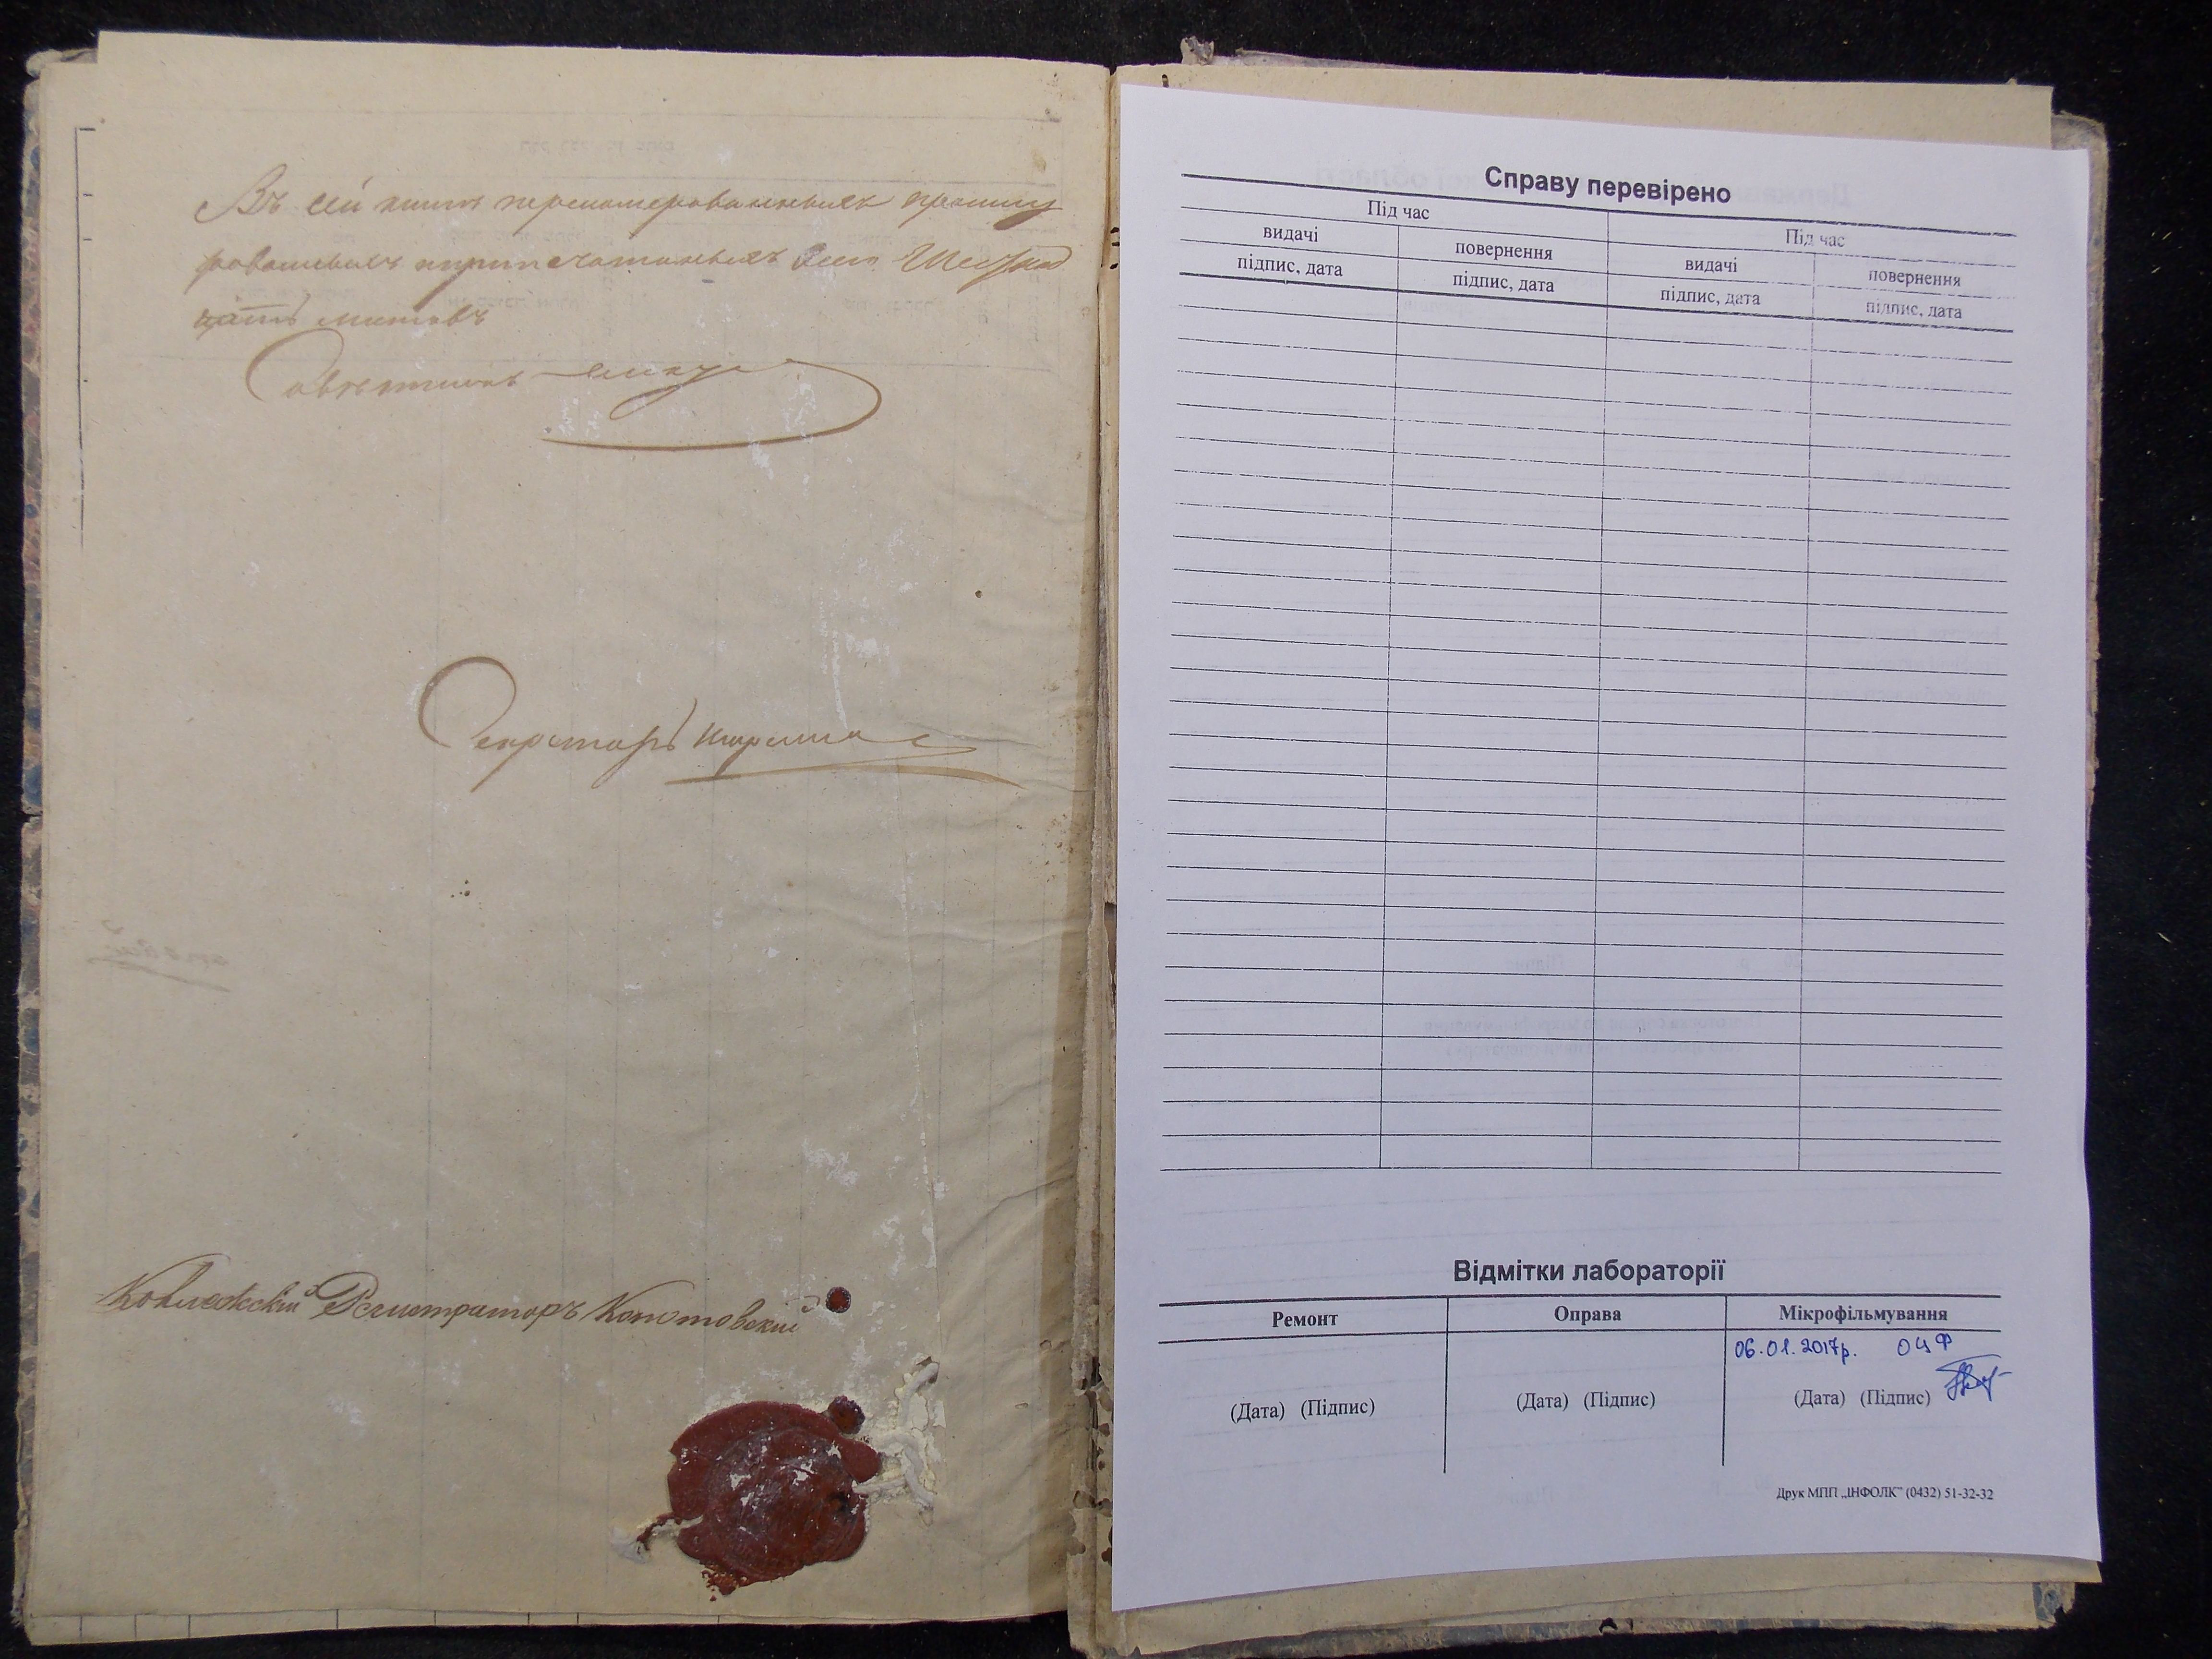 Въ сей книгѣ перенумерованныхъ прошну
рованныхъ и припечатанныхъ
цать листовъ
Совѣтникъ
Секретарь
Коллежскій Регистраторъ Копотовскій
Справу перевірено
Під час
Під час
видачі
повернення
видачі
повернення
підпис, дата
підпис, дата
підпис, дата
підпис, дата
Відмітки лабораторії
Ремонт
Оправа
Мікрофільмування
06.01.2017р. ОЦФ
(Дата) (Підпис)
(Дата) (Підпис)
(Дата) (Підпис)
Друк МПП „ІНФОЛК" (0432) 51-32-32